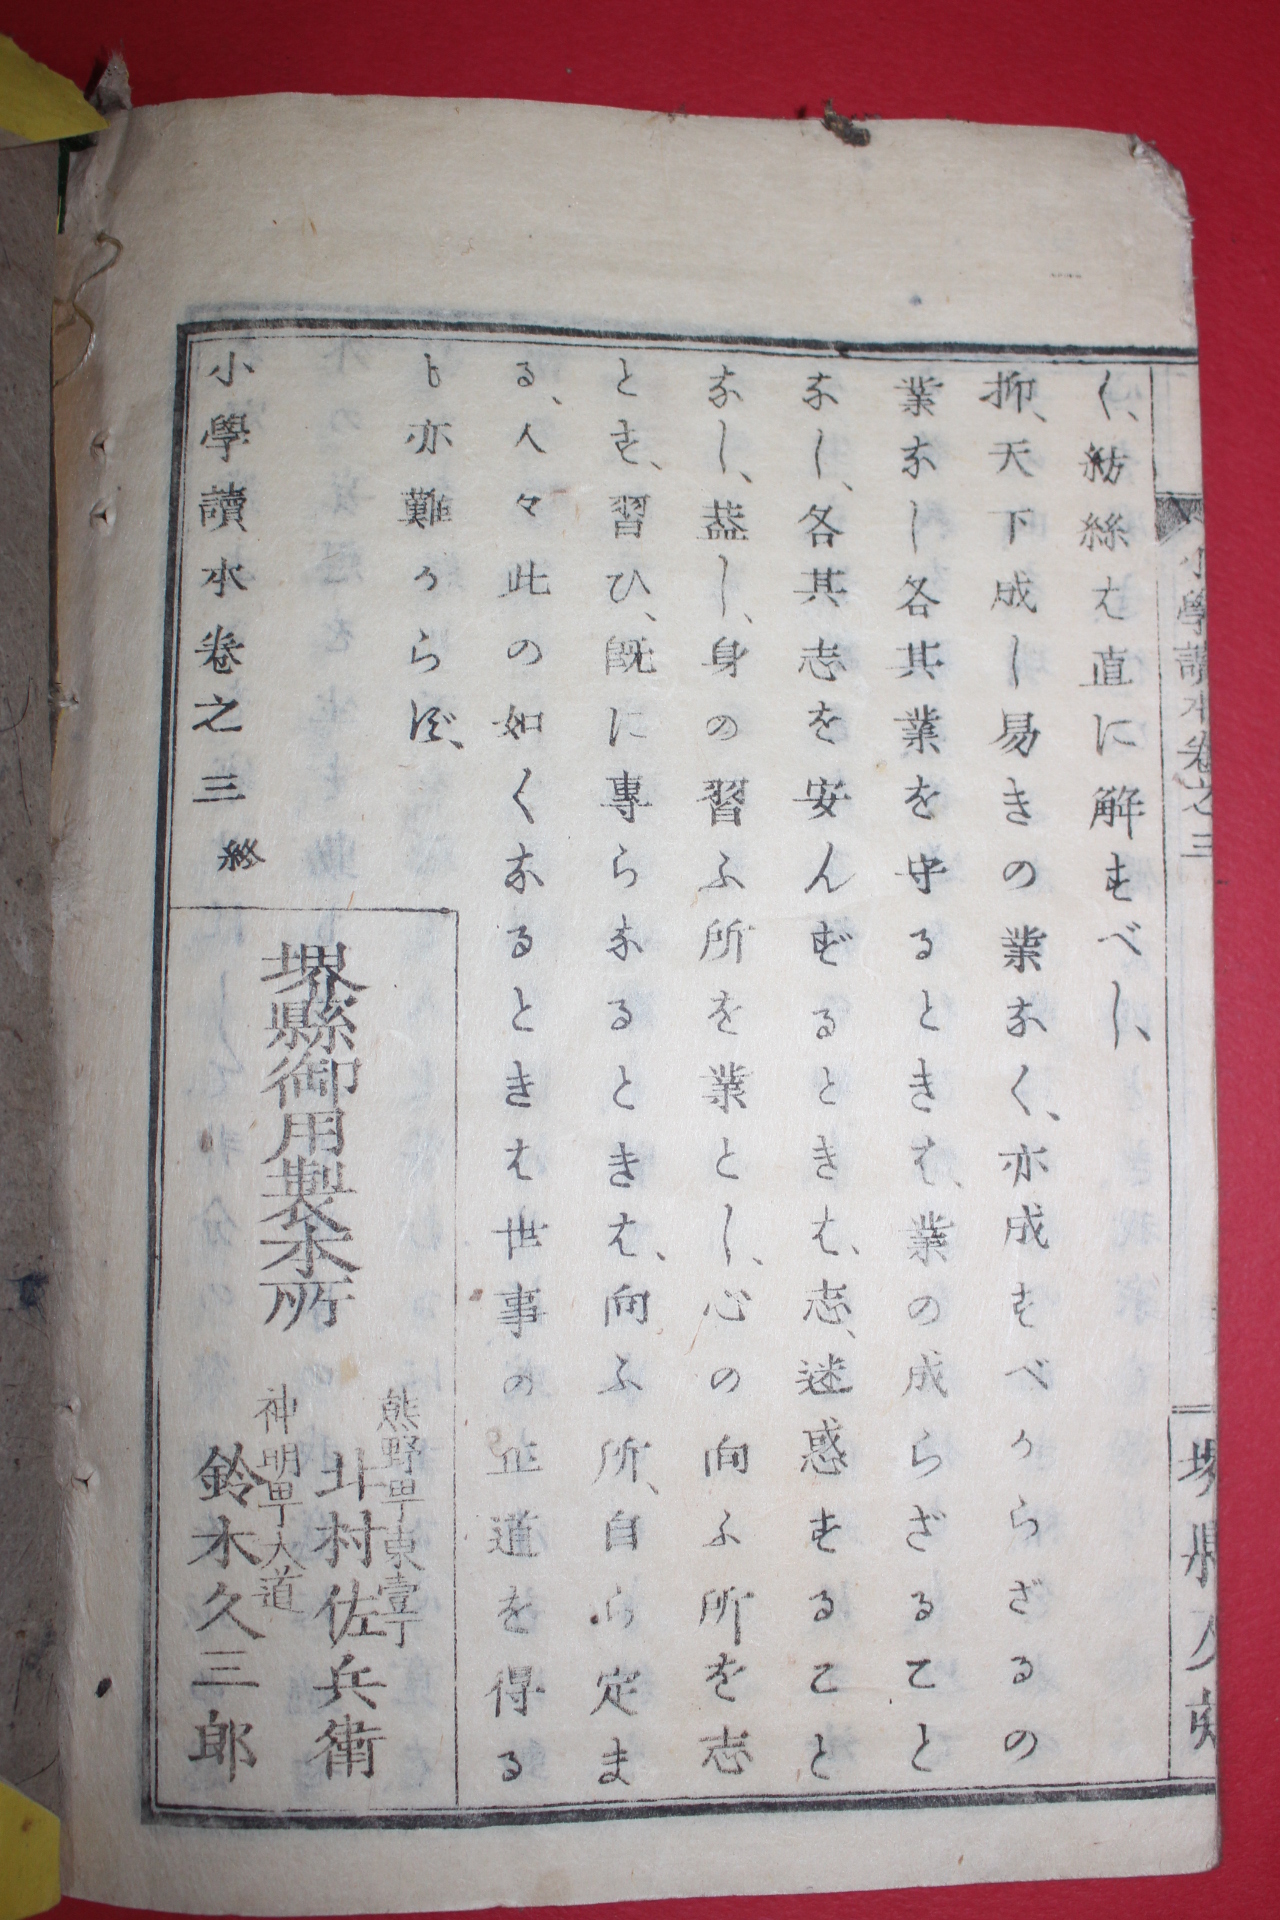 小學讀本卷之三
堺縣
く、紡絲は直に解すべし、
抑、天下成し易きの業なく、亦成すべからざるの
業なし各其業を守るときは、業の成らざること
なし、各其志を安んずるときは、志、迷惑すること
なし、葢し、身の習ふ所を業とし、心の向ふ所を志
とす、習ひ、既に專らなるときは、向ふ所、自ら定ま
る、人々此の如くなるときは世事の正道を得る
も亦難からず、
小學讀本卷之三 終
堺縣御用製本所
熊野甼東壹丁
北村佐兵衛
神明甼大道
鈴木久三郎